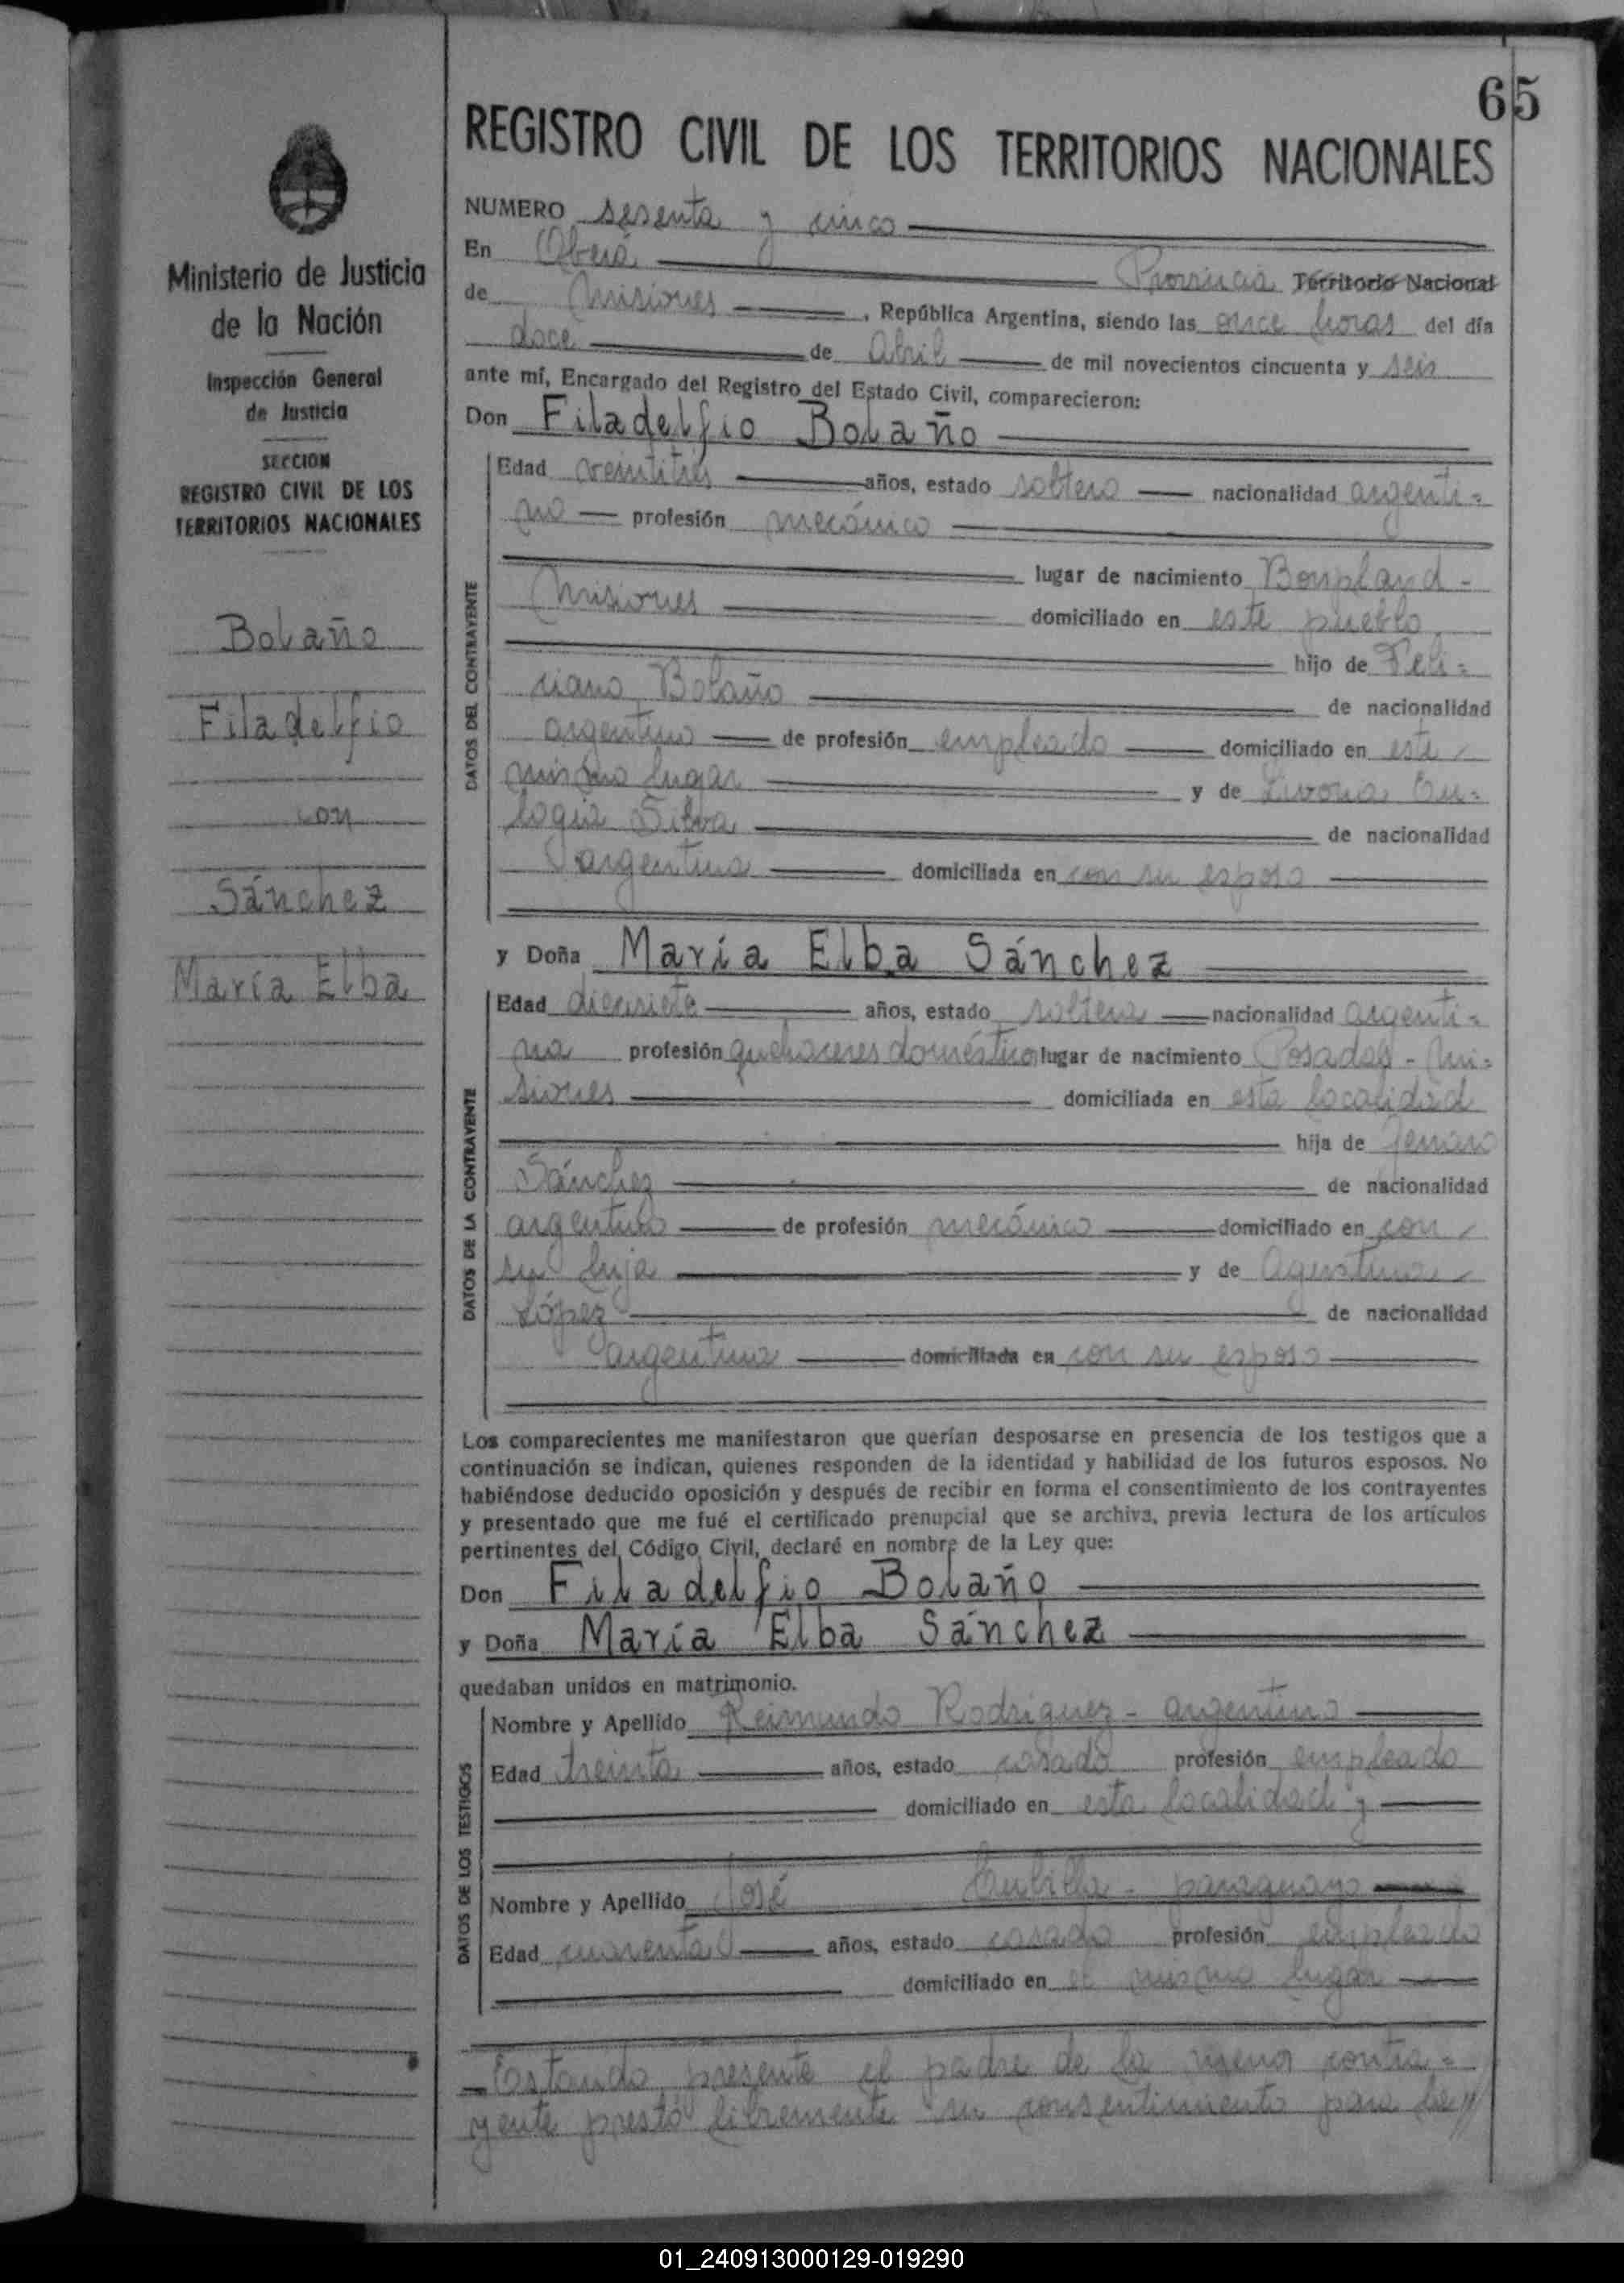 65
REGISTRO CIVIL DE LOS TERRITORIOS NACIONALES
Ministerio de Justicia
de la Nación
Inspección General
de Justicia
SECCION
REGISTRO CIVIL DE LOS
TERRITORIOS NACIONALES
Bolaño
Filadelfio
con
Sánchez
María Elba
NUMERO sesenta y cinco
En Oberá Provincia Territorio Nacional
de Misiones , República Argentina, siendo las once horas del día
doce de Abril de mil novecientos cincuenta y seis
ante mí, Encargado del Registro del Estado Civil, comparecieron:
Don Filadelfio Bolaño
DATOS DEL CONTRAYENTE
Edad veintitrés años, estado soltero nacionalidad argenti=
no profesión mecánico
lugar de nacimiento Bonpland -
Misiones domiciliado en este pueblo
hijo de Feli=
ciano Bolaño de nacionalidad
argentino de profesión empleado domiciliado en este
mismo lugar y de
logia Silva de nacionalidad
argentina domiciliada en con su esposo
y Doña María Elba Sánchez
DATOS DE LA CONTRAYENTE
Edad diecisiete años, estado soltera nacionalidad argenti=
na profesión quehaceres domésticos lugar de nacimiento Posadas - Mi=
siones domiciliada en esta localidad
hija de Jenaro
Sánchez de nacionalidad
argentino de profesión mecánico domiciliado en con
su hija y de Agustina
López de nacionalidad
argentina domiciliada en con su esposo
Los comparecientes me manifestaron que querían desposarse en presencia de los testigos que a
continuación se indican, quienes responden de la identidad y habilidad de los futuros esposos. No
habiéndose deducido oposición y después de recibir en forma el consentimiento de los contrayentes
y presentado que me fué el certificado prenupcial que se archiva, previa lectura de los artículos
pertinentes del Código Civil, declaré en nombre de la Ley que:
Don Filadelfio Bolaño
y Doña María Elba Sánchez
quedaban unidos en matrimonio.
DATOS DE LOS TESTIGOS
Nombre y Apellido Reimundo Rodriguez - argentino
Edad treinta años, estado casado profesión empleado
domiciliado en esta localidad y
Nombre y Apellido José paraguayo
Edad cuarenta años, estado casado profesión empleado
domiciliado en el mismo lugar
Estando presente el padre de la menor contra=
yente prestó libremente su consentimiento para
01_240913000129-019290